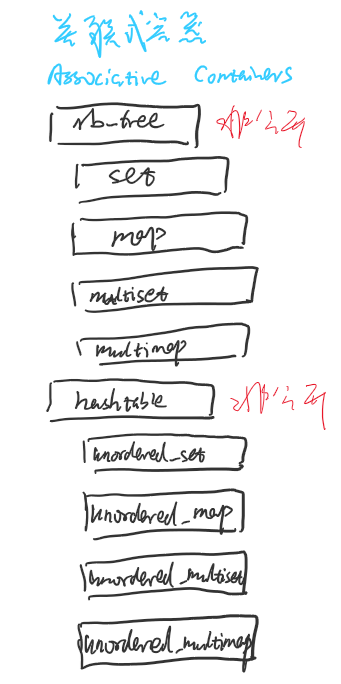 关联式容器
Associative Containers
rb-tree 非公开
set
map
multiset
multimap
hashtable 非公开
unordered_set
unordered_map
unordered_multiset
unordered_multimap